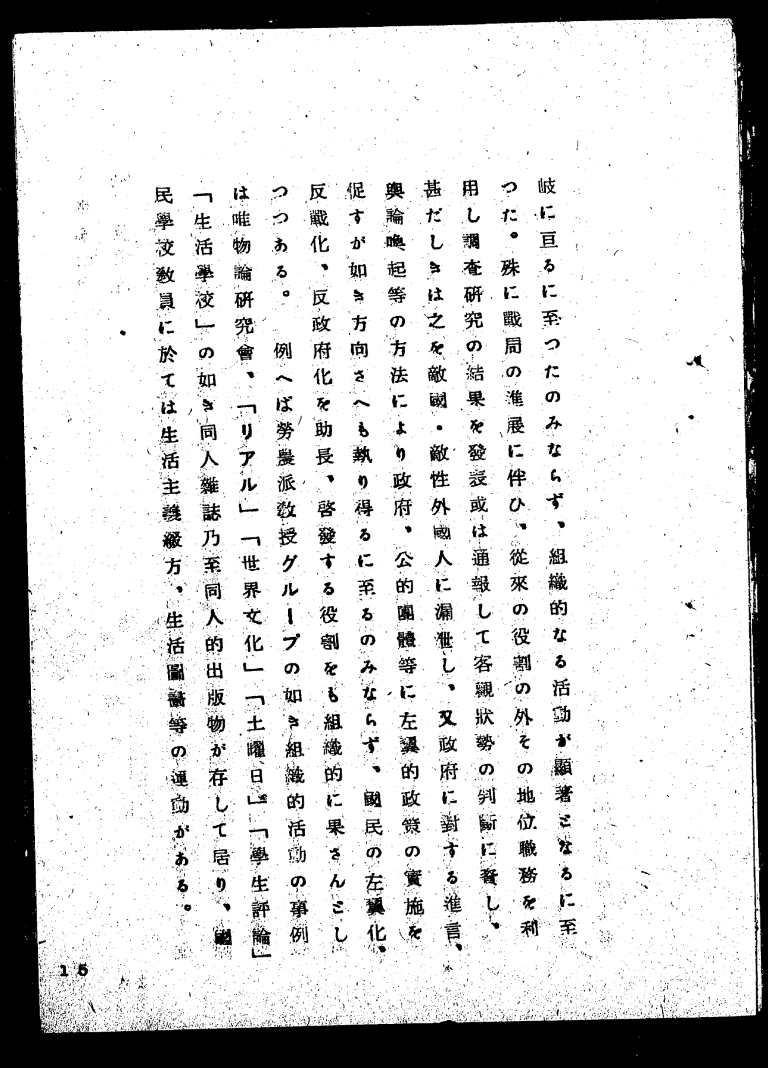 岐に亘るに至つたのみならず、組織的なる活動が顯著となるに至
つた。殊に戰局の進展に伴ひ、從來の役割の外その地位職務を利
用し調査研究の結果を發表或は通報して客觀狀勢の判斷に資し、
甚だしきは之を敵國・敵性外國人に漏泄し、又政府に對する進言、
輿論喚起等の方法により政府、公的團體等に左翼的政策の實施を
促すが如き方向さへも執り得るに至るのみならず、國民の左翼化、
反戰化、反政府化を助長、啓發する役割をも組織的に果さんとし
つつある。　例へば勞農派敎授グループの如き組織的活動の事例
は唯物論硏究會、「リアル」「世界文化」「土曜日」「學生評論」
「生活學校」の如き同人雜誌乃至同人的出版物が存して居り、國
民學校敎員に於ては生活主義綴方、生活圖畵等の運動がある。
15